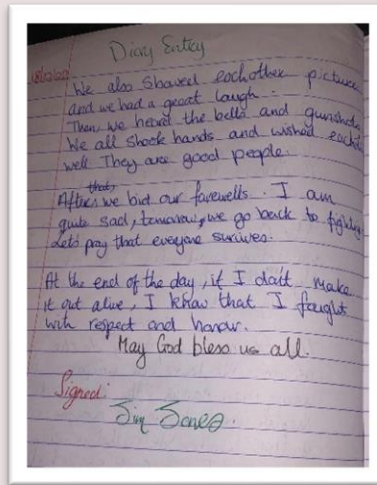 Diary Entry
We also showed eachother picture
and we had a great laugh.
Then we heard the bells and gunshots
We all shook hands and wished
well. They are good people.
that,
After we bid our farewells. I am
quite sad, tomorrow, we go back to fighting
Lets pray that everyone survives.
At the end of the day, if I don't make
it out alive, I know that I fought
with respect and honour.
May God bless us all.
Signed:
Jim Jones.